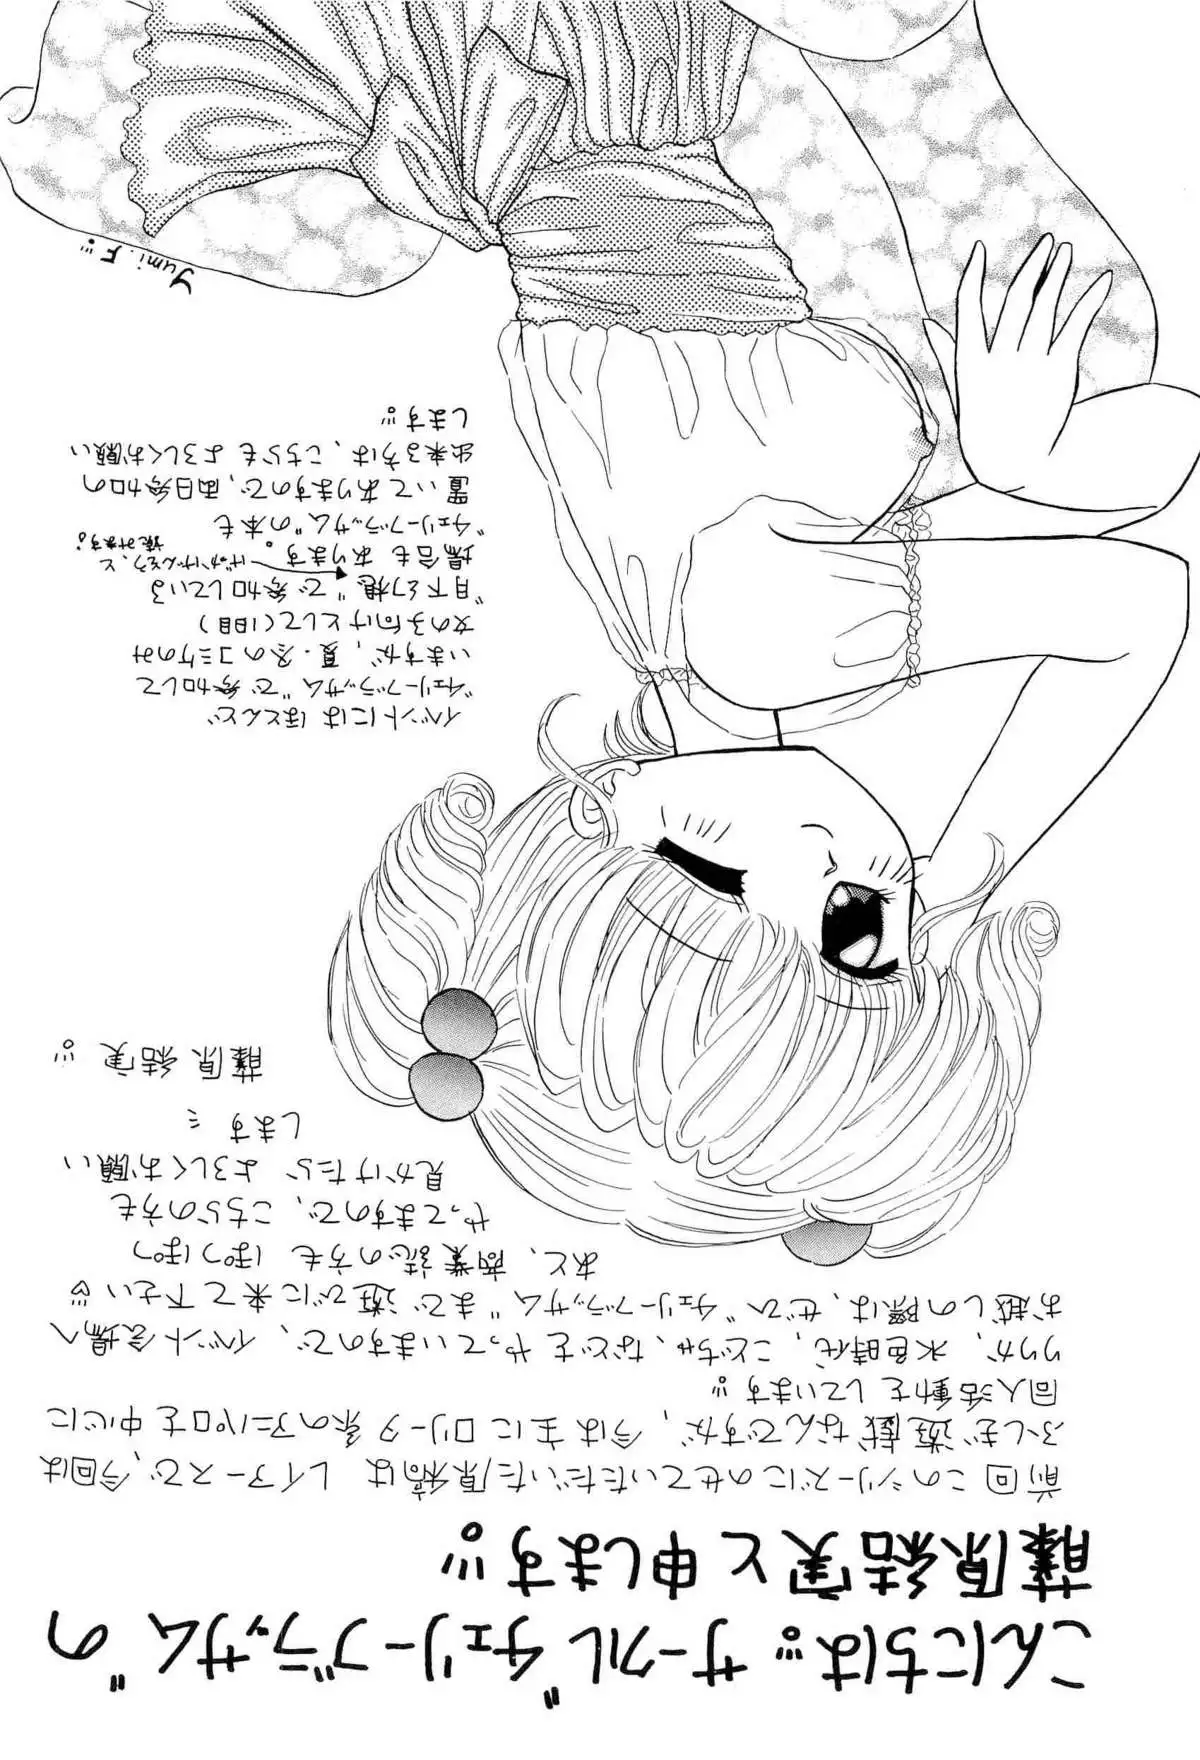 こんにちは サークル"チェリーブラッサム"の
藤原結実と申します
前回このシリーズにのせていただいた原稿は レイアースで、今回は
ふしぎ遊戯なんですが、今は主にロリータ系のアニパロを中心に
同人活動をしています
リリカ、水色時代、こどちゃ、などをやっていますので、イベント会場へ
お越しの際は、ぜひ"チェリーブラッサム"まで遊びに来て下さい♡
あと、商業誌の方も ぽつぽつ
やってますので、こちらの方も
見かけたら よろしくお願い
します
藤原 結実
イベントには ほとんど
"チェリーブラッサム"で参加して
いますが、夏・冬のコミケのみ
女の子向けとして(1日目)
"月下幻想"で参加している
場合も あります。
げっかげんそう、と
読みます。
"チェリーブラッサム"の本も
置いてありますので、両日参加の
出来る方は、こちらも よろしくお願い
します
Yumi.F